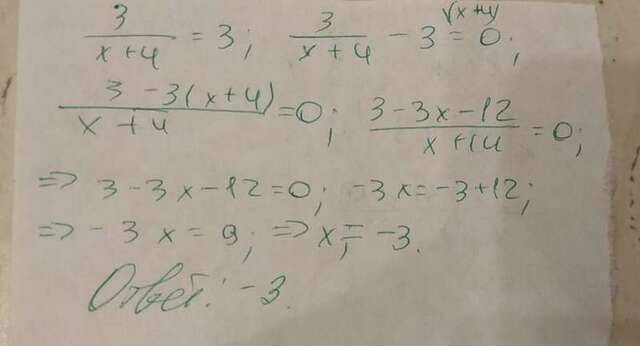 3/(x+4) = 3; 3/(x+4) - 3 = 0; \(x+4)
(3-3(x+4))/(x+4) = 0; (3-3x-12)/(x+4) = 0;
=> 3-3x-12=0; -3x=-3+12;
=> -3x=9; => x=-3.
Ответ: -3.